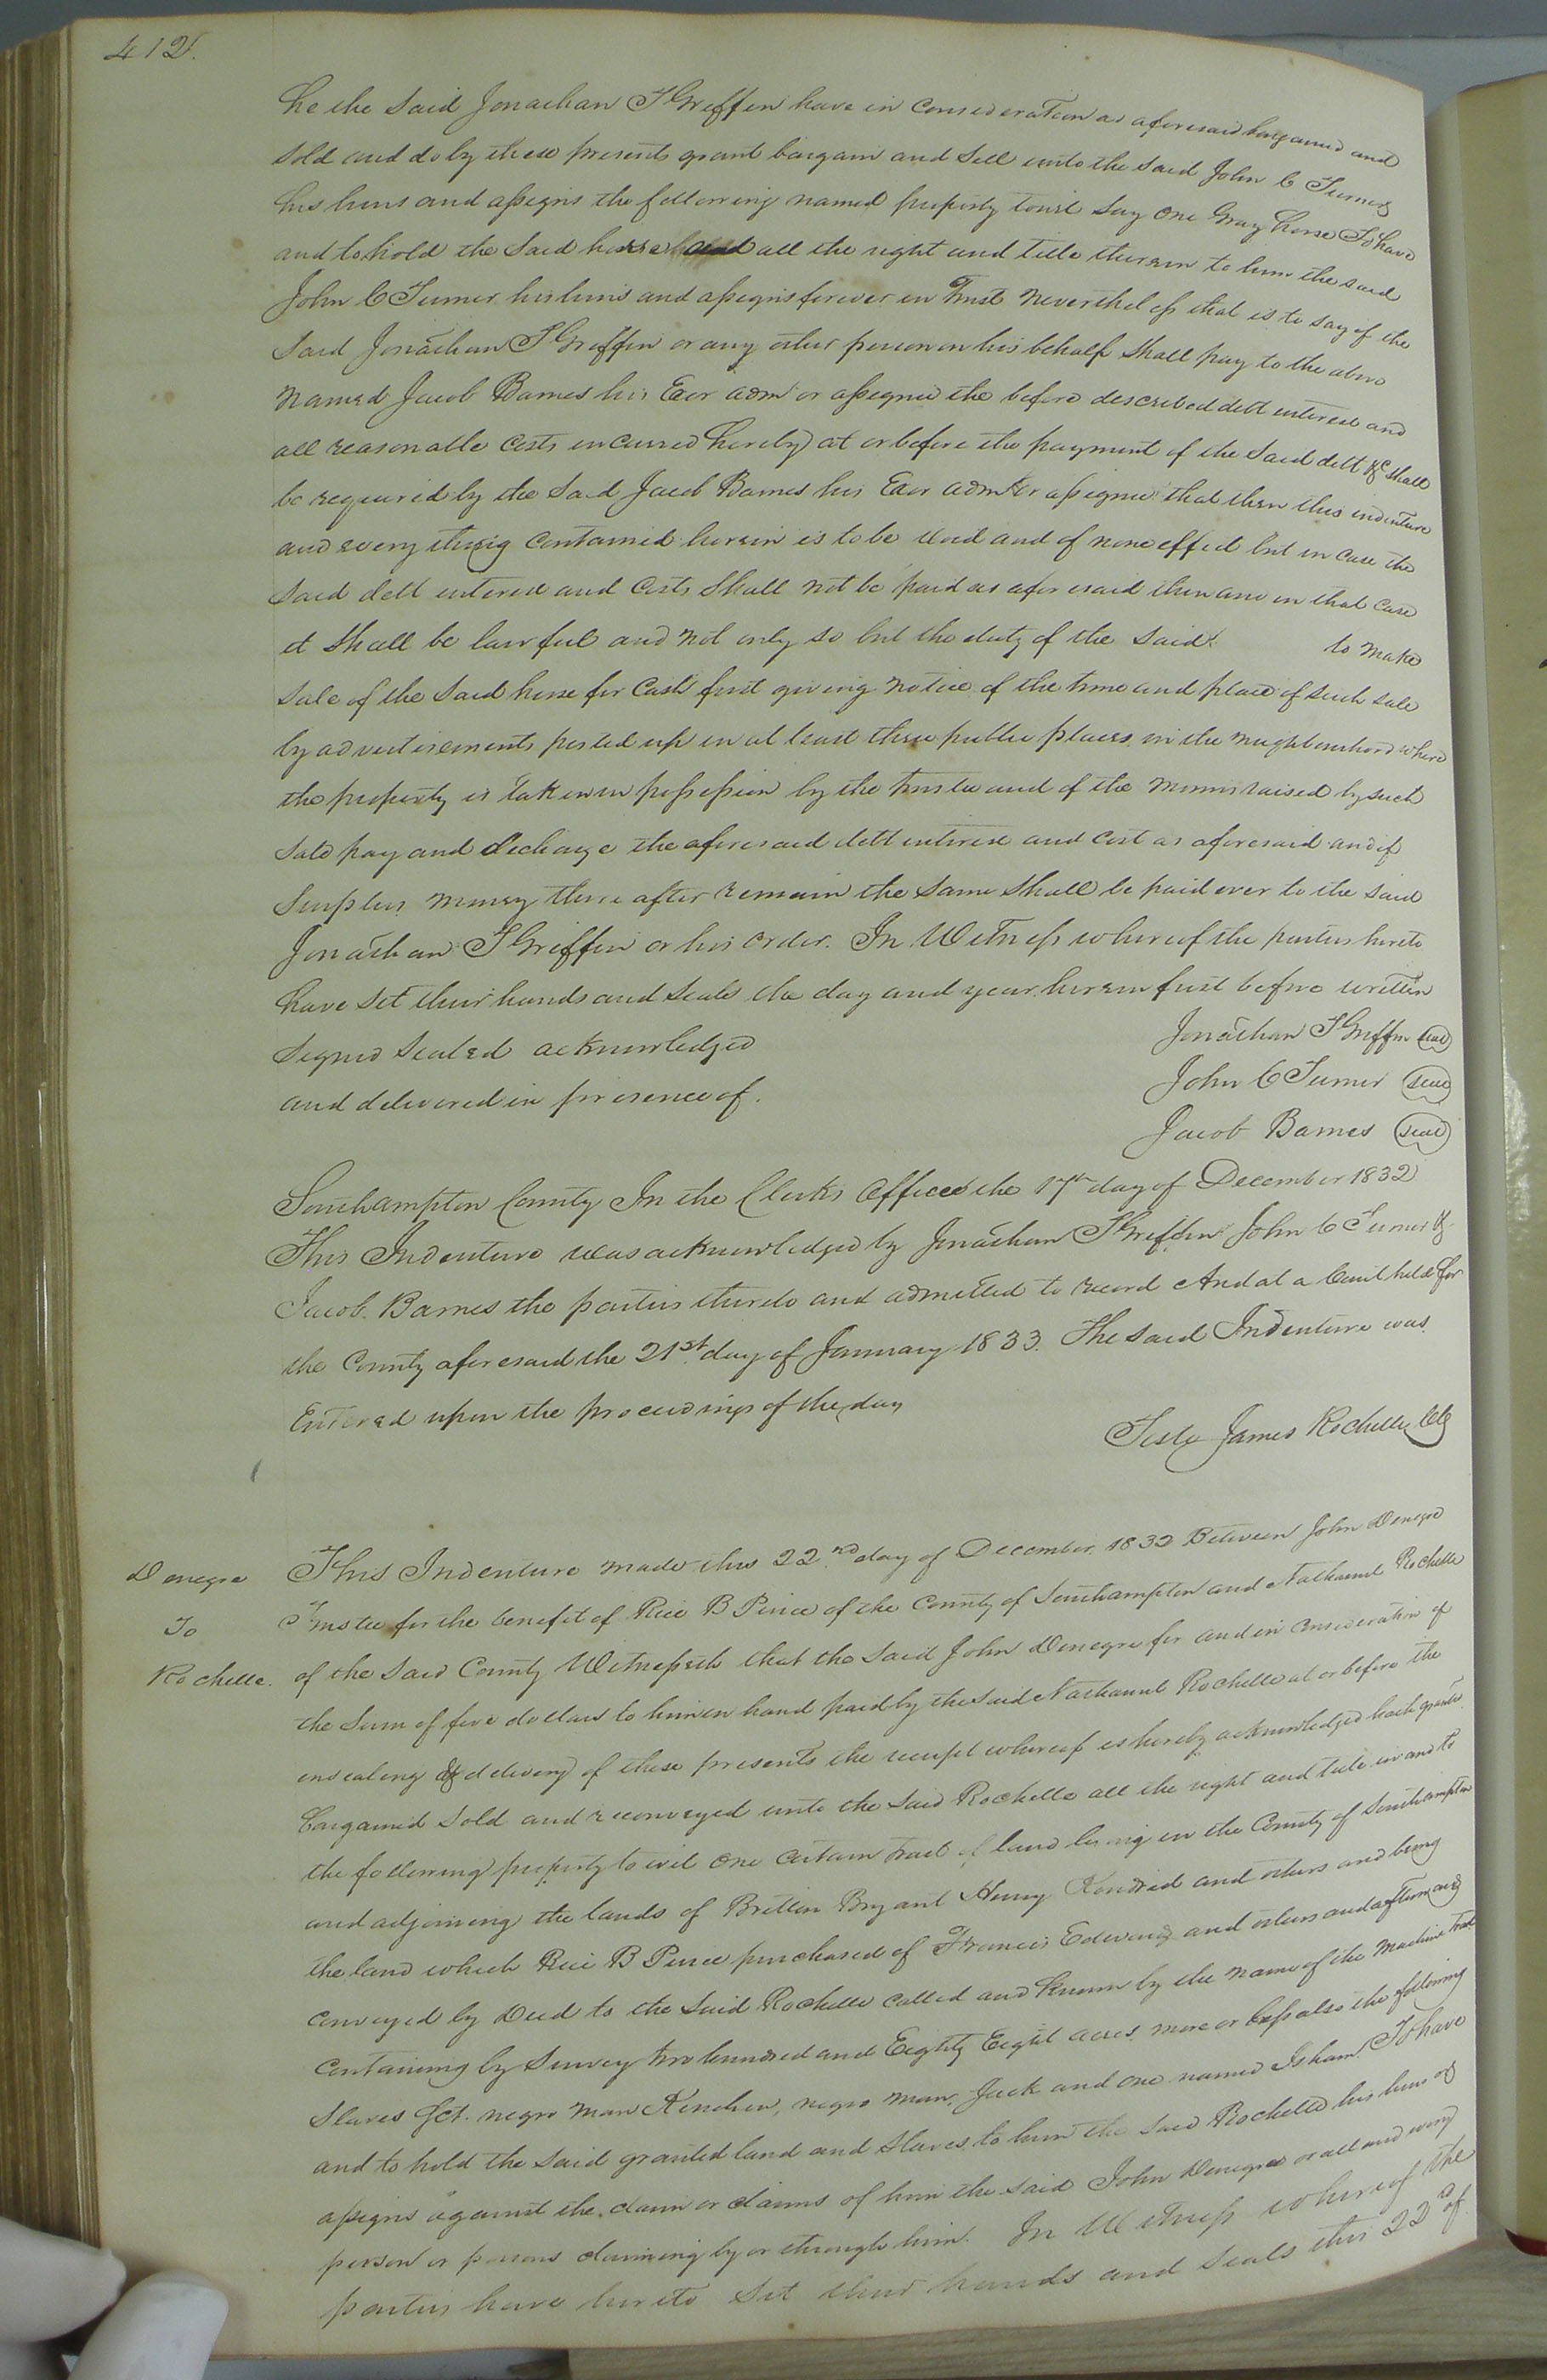 412.
he the said Jonathan T Griffin have in consideration as aforesaid bargained and
sold and do by these presents grant bargain and sell unto the said John C Turner
his heirs and assigns the following named property towit say one Gray horse To have
and to hold the said horse and all the right and title therein to him the said
John C Turner his heirs and assigns forever in Trust nevertheless that is to say if the
said Jonathan T Griffin or any other person on his behalf shall pay to the above
named Jacob Barnes his Exor adm or assignee the before described debt interest and
all reasonable costs incurred hereby at or before the payment of the said debt &c shall
be required by the said Jacob Barnes his Exor admr or assignee that then this indenture
and every thing contained herein is to be void and of none effect but in case the
said debt interest and costs shall not be paid as aforesaid then and in that case
it shall be lawful and not only so but the duty of the said to make
sale of the said horse for cash first giving notice of the time and place of such sale
by advertisements posted up in at least three public places in the neighbourhood where
the property is taken in possession by the trustee and of the monies raised by such
sale pay and discharge the aforesaid debt interest and cost as aforesaid and if
surplus money there after remain the same shall be paid over to the said
Jonathan T Griffin or his order. In Witness whereof the parties hereto
have set their hands and seals the day and year herein first before written
Signed sealed acknowledged Jonathan T Griffin seal
and delivered in presence of. John C Turner seal
Jacob Barnes seal
Southampton County In the Clerks Office the 17th day of December 1832
This Indenture was acknowledged by Jonathan T Griffin John C Turner &
Jacob Barnes the parties thereto and admitted to record And at a Court held for
the County aforesaid the 21st day of January 1833. The said Indenture was
Entered upon the proceedings of the day
Teste James Rochelle Clk
Denegre
To
Rochelle.
This Indenture made this 22nd day of December 1832 Between John Denegre
Trustee for the benefit of Rice B Pierce of the County of Southampton and Nathaniel Rochelle
of the said County Witnesseth that the said John Denegre for and in consideration of
the sum of five dollars to him in hand paid by the said Nathaniel Rochelle at or before the
ensealing & delivery of these presents the receipt whereof is hereby acknowledged hath granted
bargained sold and reconveyed unto the said Rochelle all the right and title in and to
the following property to wit one certain tract of land lying in the County of Southampton
and adjoining the lands of Britton Bryant Henry Kendred and others and being
the land which Rice B Pierce purchased of Francis Edwards and others and afterwards
conveyed by Deed to the said Rochelle called and known by the name of the Machine tract
containing by Survey two hundred and Eighty Eight acres more or less also the following
slaves Sct. negro man Kinchen, negro man Jack and one named Isham To have
and to hold the said granted land and slaves to him the said Rochelle his heirs or
assigns against the claim or claims of him the said John Denegre or all and every
person or persons claiming by or through him. In Witness whereof the
parties have hereto set their hands and seals this 22d of